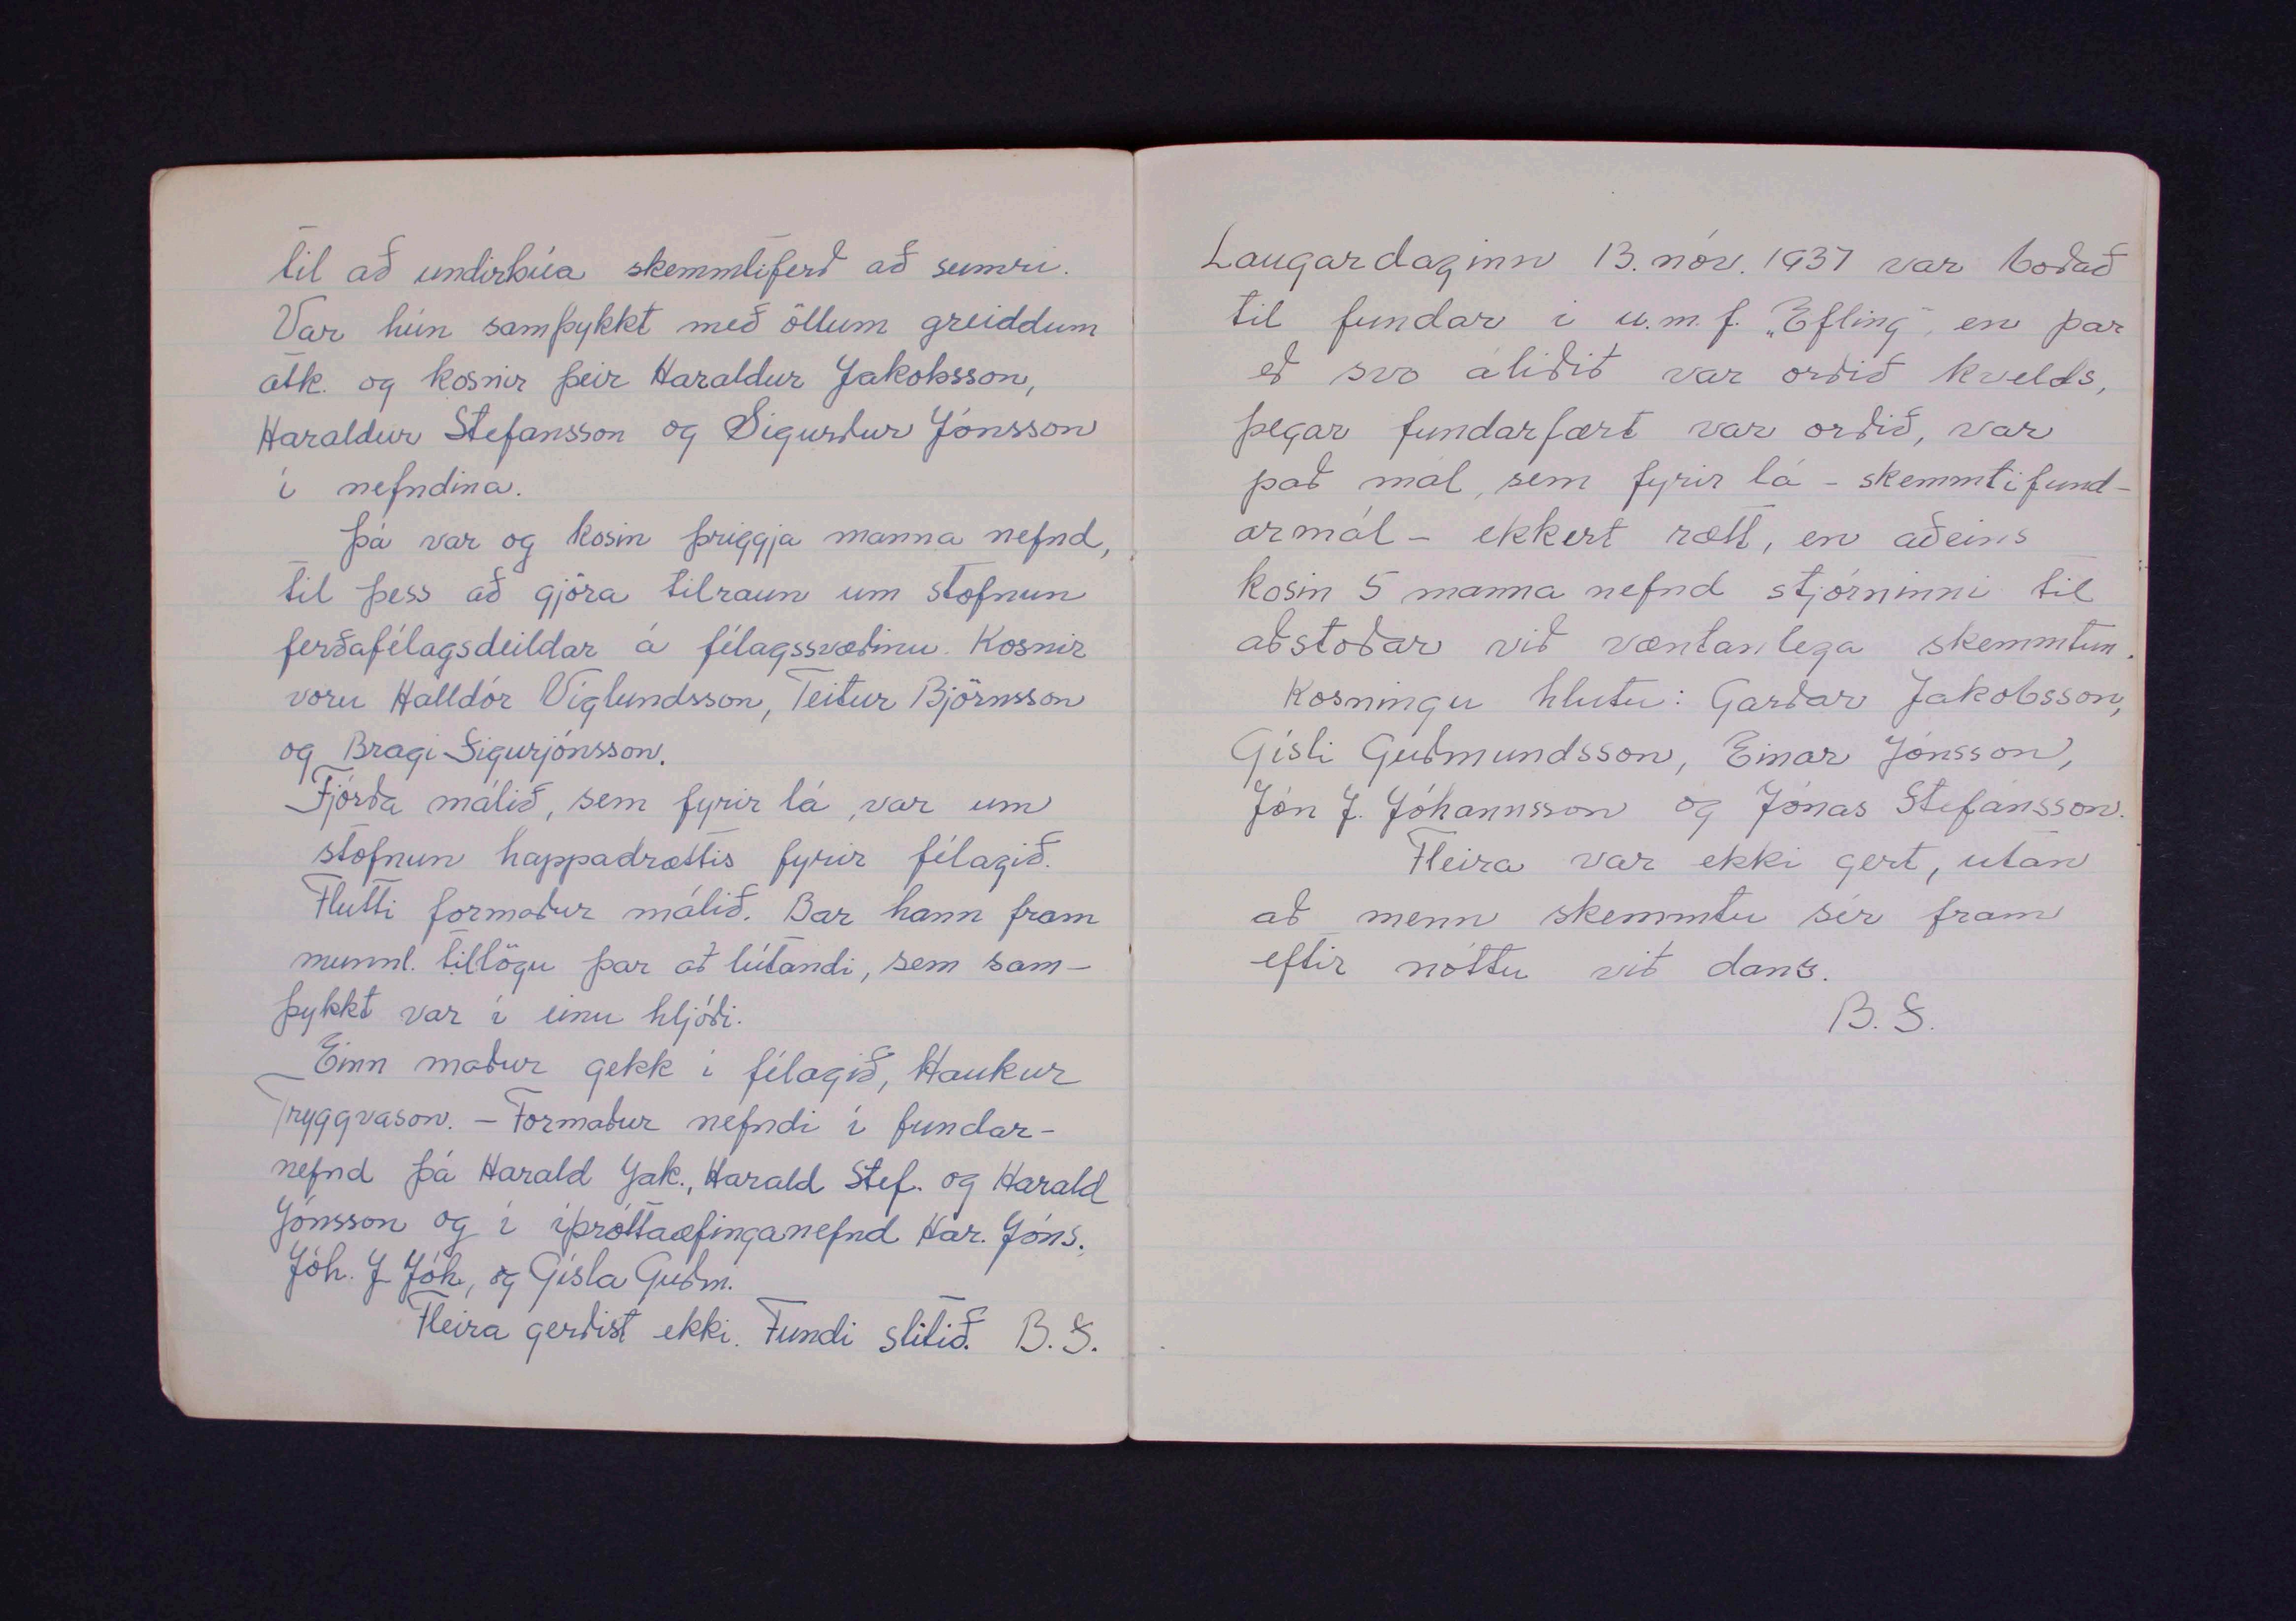 til að undirbúa skemmtiferð að sumri.
Var hún samþykkt með öllum greiddum
atk. og kosnir þeir Haraldur Jakobsson,
Haraldur Stefansson og Sigurður Jónsson
í nefndina.
Þá var og kosin þriggja manna nefnd,
til þess að gjöra tilraun um stofnun
ferðafélagsdeildar á félagssvæðinu. Kosnir
voru Halldór Víglundsson, Teitur Björnsson
og Bragi Sigurjónsson.
Fjórða málið, sem fyrir lá, var um
stofnun happadrættis fyrir félagið.
Flutti formaður málið. Bar hann fram
munnl. tillögu þar að lútandi, sem sam-
þykkt var í einu hljóði.
Einn maður gekk í félagið, Haukur
Tryggvason. – Formaður nefndi í fundar-
nefnd þá Harald Jak., Harald Stef. og Harald
Jónsson og í íþróttaæfinganefnd Har. Jóns.
Jóh. J Jóh, og Gísla Guðm.
Fleira gerðist ekki. Fundi slitið. B.S.
Laugardaginn 13. nóv. 1937 var boðað
til fundar í u.m.f. „Efling", en þar
eð svo áliðið var orðið kvelds,
þegar fundarfært var orðið, var
það mál, sem fyrir lá – skemmtifund-
armál – ekkert rætt, en aðeins
kosin 5 manna nefnd stjórninni til
aðstoðar við væntanlega skemmtun.
Kosningu hlutu: Garðar Jakobsson,
Gísli Guðmundsson, Einar Jónsson,
Jón J. Jóhannsson og Jónas Stefánsson.
Fleira var ekki gert, utan
að menn skemmtu sér fram
eftir nóttu við dans.
B. S.